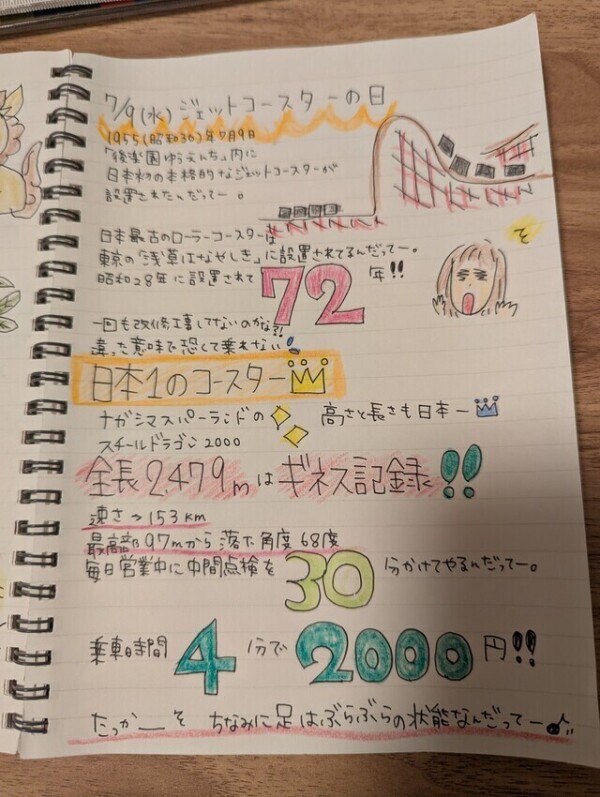 7/9(水)ジェットコースターの日
1955(昭和30)年7月9日
「後楽園ゆうえんち」内に
日本初の本格的なジェットコースターが
設置されたんだってー。
日本最古のローラーコースターは
東京の「浅草はなやしき」に設置されてるんだってー。
昭和28年に設置されて72年!!
そ
一回も改修工事してないのかな?!
違った意味で恐くて乗れない
日本1のコースター
ナガシマスパーランドの 高さと長さも日本一
スチールドラゴン2000
全長2,479mはギネス記録!!
速さ→153km
最高部97mから落下角度68度
毎日営業中に中間点検を30分かけてやるんだってー。
乗車時間4分で2000円!!
たっかーそ ちなみに足はぶらぶらの状態なんだってー